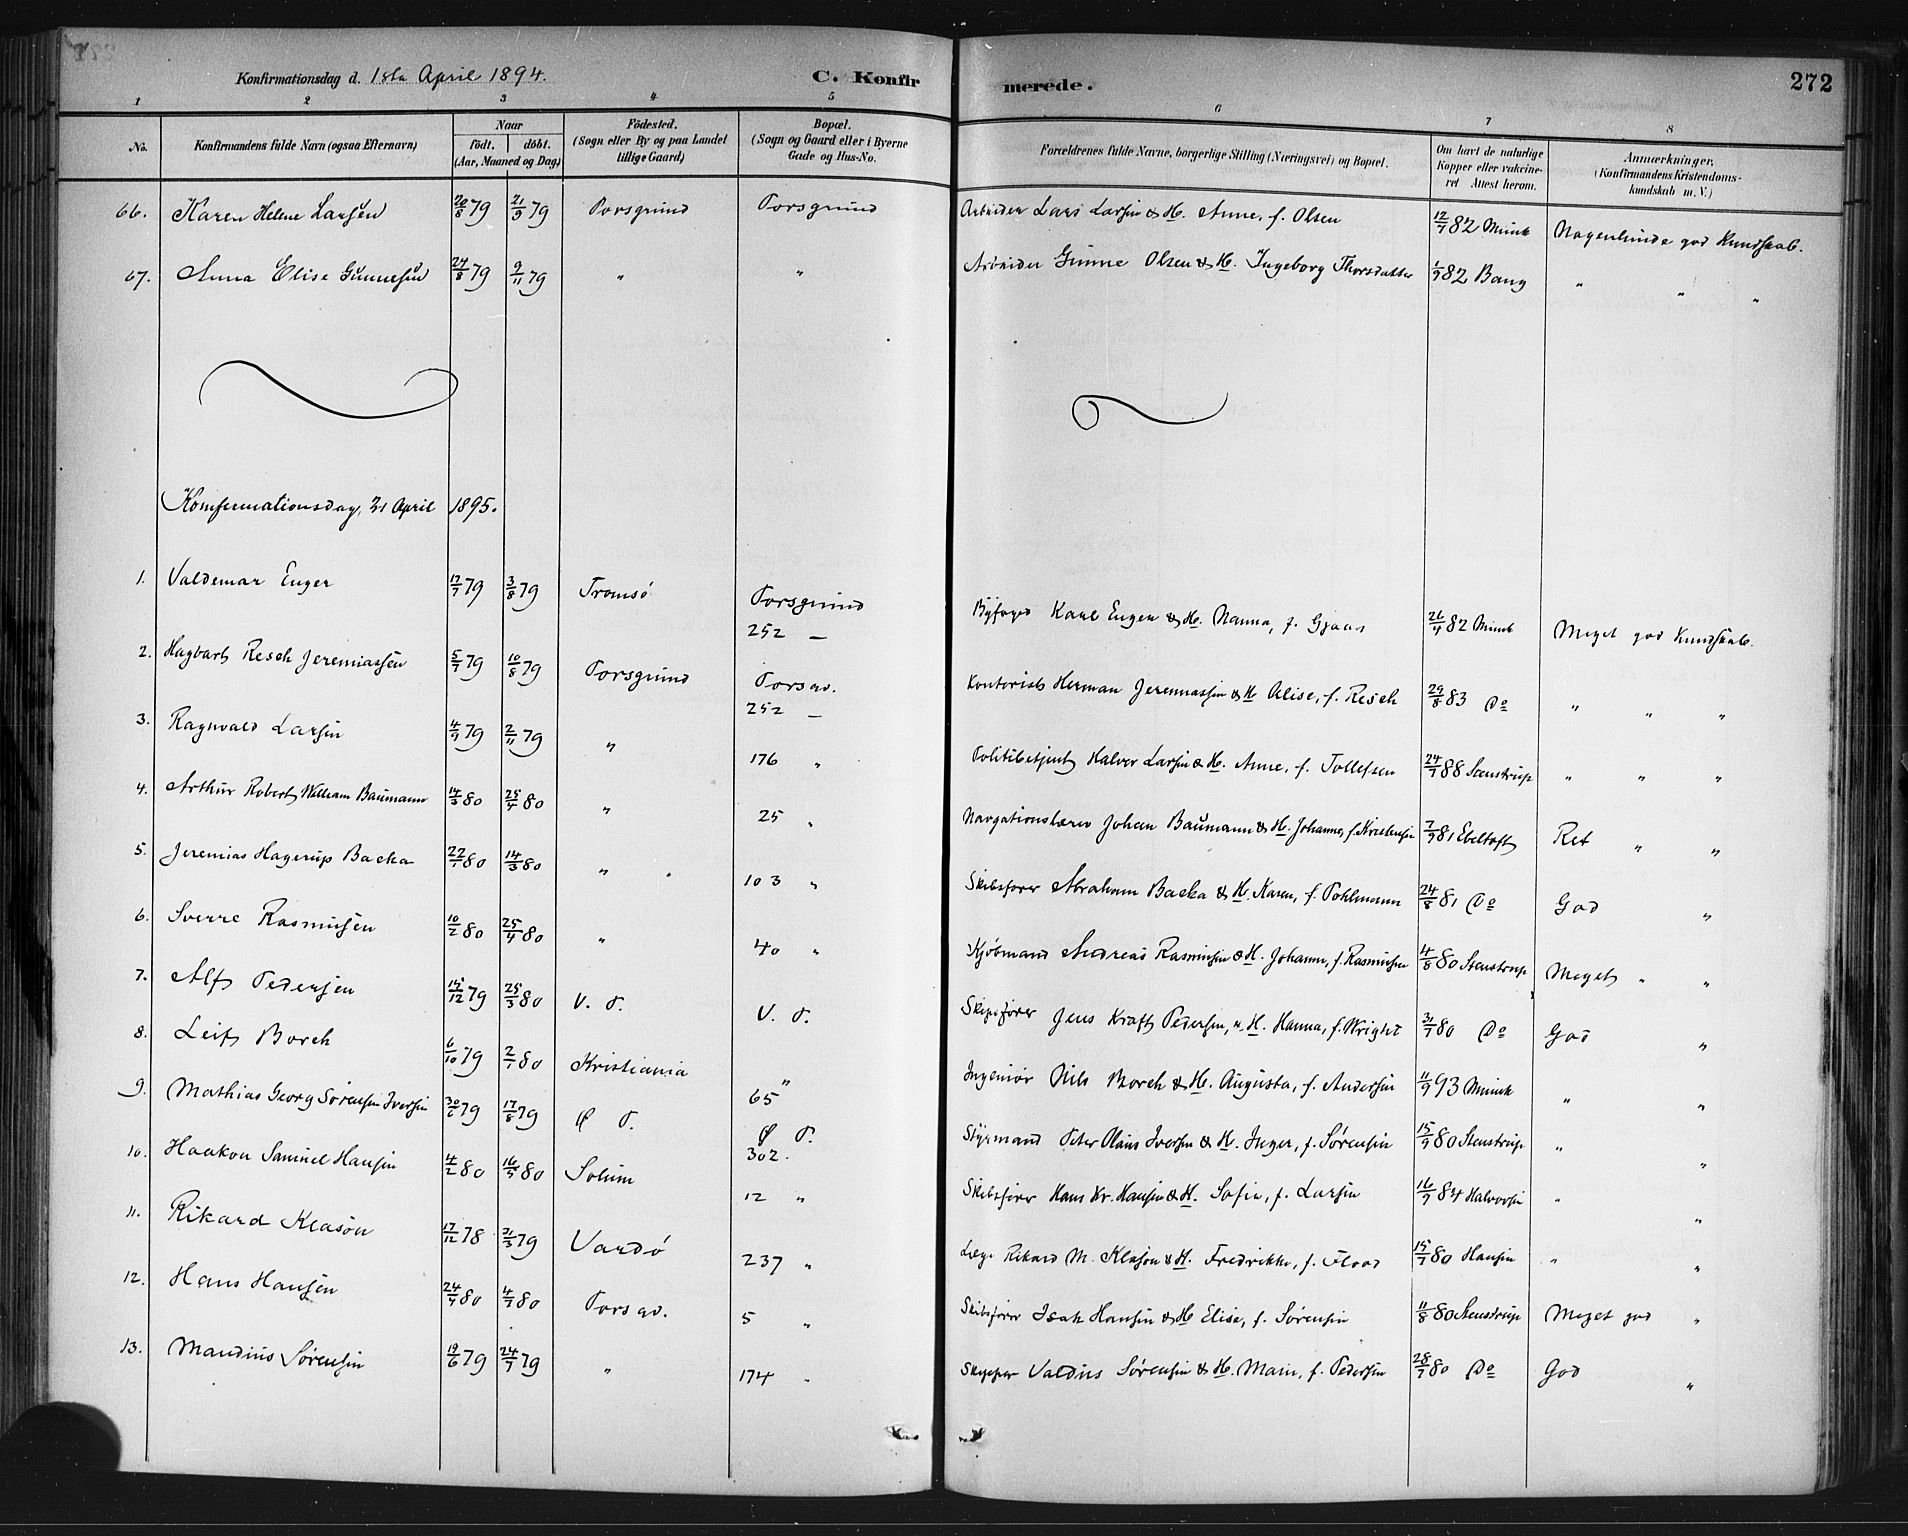 Konfirmationsdag d. 1ste April 1894. C. Konfirmerede. 272
1 2 3 4 5 6 7 8
No. Konfirmandens fulde Navn (ogsaa Efternavn) Naar födt. döbt. (Aar, Maaned og Dag) Födested. (Sogn eller By og paa Landet tillige Gaard) Bopæl. (Sogn og Gaard eller i Byerne Gade og Hus-No. Forældrenes fulde Navne, borgerlige Stilling (Næringsvei) og Bopæl. Om havt de naturlige Kopper eller vakcineret Attest herom. Anmærkninger, (Konfirmandens Kristendomskundskab m. V.)
66. Karen Helene Larsen 20/8 79 21/9 79 Porsgrund Porsgrund Arbeider Lars Larsen & H. Anne, f. Olsen 12/7 82 Munk Nogenlunde god Kundskab.
67. Anna Elise Gunnesen 24/8 79 9/11 79 " " Arbeider Gunne Olsen & H. Ingeborg Thorsdatter 1/9 82 Bang " " "
Konfirmationsdag, 21 April 1895.
1. Valdemar Enger 17/7 79 3/8 79 Tromsø Porsgrund 252 — Byfoged Karl Enger & H. Nanna, f. Gjaas 26/4 82 Munk Meget god Kundskab.
2. Hagbart Resch Jeremiassen 5/7 79 10/8 79 Porsgrund Porsgr. 252 — Kontorist Herman Jeremiassen & H. Elise, f. Resch 29/8 83 Do " " "
3. Ragnvald Larsen 4/9 79 2/11 79 " 176 " Politibetjent Halvor Larsen & H. Anne, f. Tollefsen 24/7 88 Stenstrup " " "
4. Arthur Robert William Baumann 14/3 80 25/4 80 " 25 " Navgationslærer Johan Baumann & H. Johanne, f. Kristensen 7/9 81 Ebeltoft Ret " "
5. Jeremias Hagerup Backa 22/1 80 14/3 80 " 103 " Skibsfører Abraham Backa & H. Karen, f. Pohlmann 24/8 81 Do God "
6. Sverre Rasmusen 10/2 80 25/4 80 " 40 " Kjøbmand Andreas Rasmusen & H. Johanne, f. Rasmusen 4/8 80 Stenstrup Meget " "
7. Alf Pedersen 15/12 79 25/3 80 V. P. V. P. Skipsfører Jens Kraft Pedersen, & H. Hanna, f. Wright 31/7 80 Do God "
8. Leif Borch 6/10 79 2/1 80 Kristiania " 65 Ingeniør Nils Borch & H. Augusta, f. Andersen 11/9 93 Munk " "
9. Mathias Georg Sørensen Iversen 30/6 79 17/8 79 Ø P. Ø P. 302. Styrmand Peter Olaus Iversen & H. Inger, f. Sørensen 15/9 80 Stenstrup " "
10. Haakon Samuel Hansen 4/2 80 16/5 80 Solum 12 " Skibsfører Hans Kr. Hansen & H. Sofie, f. Larsen 16/9 84 Halvorsen " "
11. Rikard Klasøn 17/12 78 21/3 79 Vardø 237 " Læge Rikard M. Klasøn & H. Fredrikke, f. Flood 15/7 80 Hansen " "
12. Hans Hansen 24/4 80 4/7 80 Porsgr. 5 " Skibsfører Isak Hansen & H Elise, f. Sørensen 11/8 80 Stenstrup Meget god "
13. Maudius Sørensen 19/6 79 24/7 79 " 174 " Skipper Valdus Sørensen & H. Marn, f. Pedersen 28/7 80 Do God "